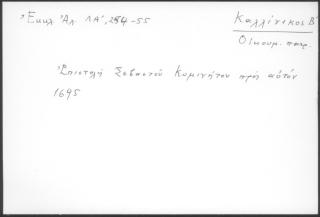 Ἐκκλ Ἀλ. ΛΑ', 254-55
Καλλίνικος Β'
Οἰκουμ. πατρ.
Ἐπιστολὴ Σεβαστοῦ Κυμινήτου πρὸς αὐτόν
1695